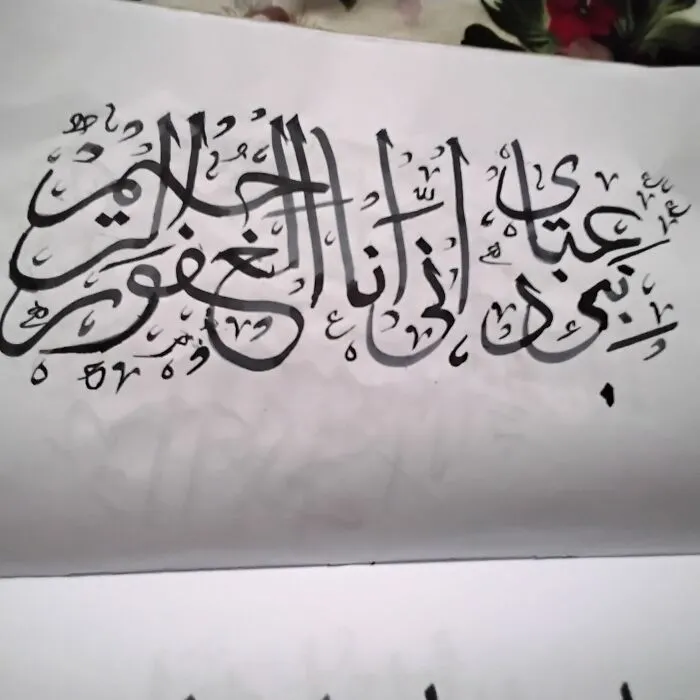 نبئ عبادى انى انا الغفور الرحيم